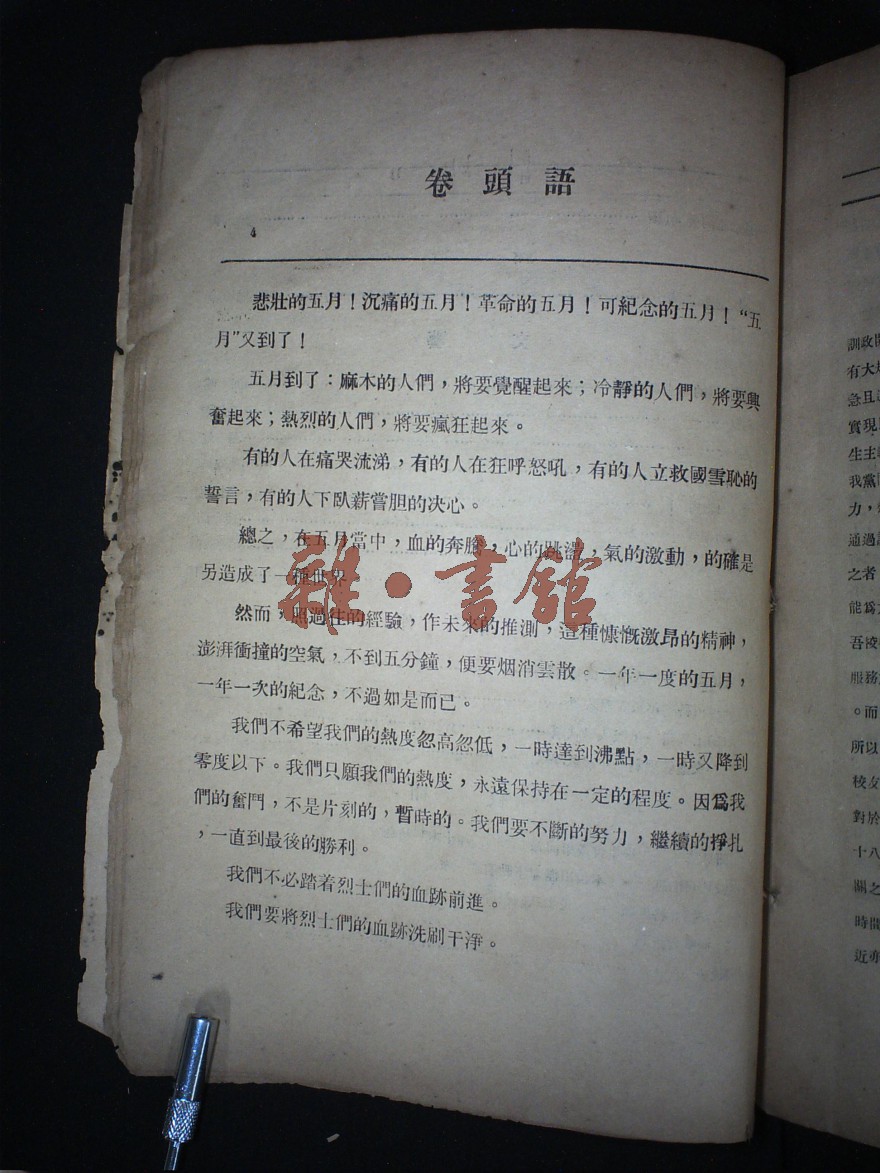 卷頭語
悲壯的五月！沉痛的五月！革命的五月！可紀念的五月！“五
月”又到了！
五月到了：麻木的人們，將要覺醒起來；冷靜的人們，將要興
奮起來；熱烈的人們，將要瘋狂起來。
有的人在痛哭流涕，有的人在狂呼怒吼，有的人立救國雪恥的
誓言，有的人下臥薪嘗胆的决心。
總之，在五月當中，血的奔騰，心的跳濺，氣的激動，的確是
另造成了一種世界
然而，照過往的經驗，作未來的推測，這種慷慨激昂的精神，
澎湃衝撞的空氣，不到五分鐘，便要烟消雲散。一年一度的五月，
一年一次的紀念，不過如是而已。
我們不希望我們的熱度忽高忽低，一時達到沸點，一時又降到
零度以下。我們只願我們的熱度，永遠保持在一定的程度。因爲我
們的奮鬥，不是片刻的，暫時的。我們要不斷的努力，繼續的掙扎
，一直到最後的勝利。
我們不必踏着烈士們的血跡前進。
我們要將烈士們的血跡洗刷干淨。
雜·書館
訓政
有大
急且
實現
生主
我黨
力，
通過
之者
能爲
吾校
服務
。而
所以
校友
對於
十八
關之
時間
近亦